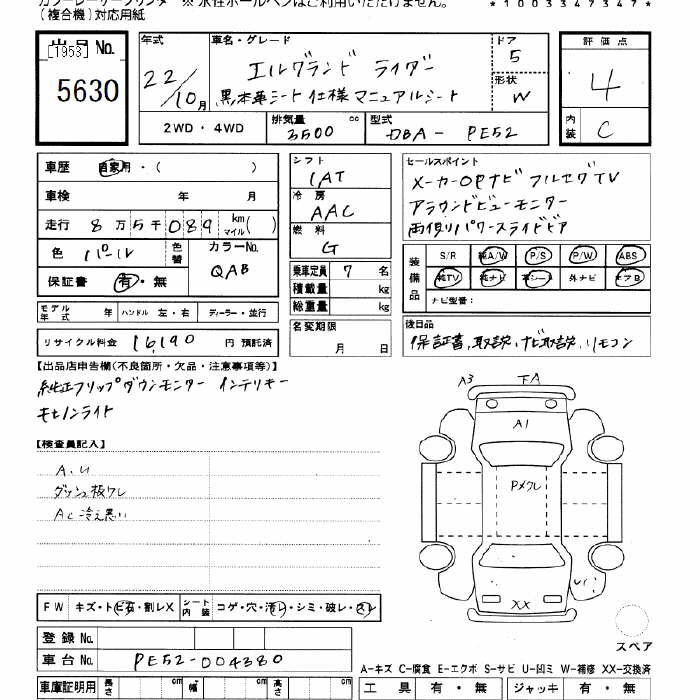 カラーレーザープリンター ※ 水性ボールペンはご利用いただけません。
*1003347347*
(複合機)対応用紙
出品No.
[1953]
5630
年式
22/10月
車名・グレード
エルグランド ライダー
黒本革シート仕様マニュアルシート
ドア
5
形状
W
評価点
4
内装
C
2WD・4WD
排気量
3500 cc
型式
DBA - PE52
車歴 自家用・( )
車検 年 月
走行 8万5千089 km マイル( )
色 パール 色替
カラーNo.
QAB
保証書 有・無
モデル年式 年 ハンドル 左・右 ディーラー・並行
リサイクル料金 16,190 円 預託済
シフト
IAT
冷房
AAC
燃料
G
乗車定員 7 名
積載量 kg
総重量 kg
名変期限
月 日
セールスポイント
メーカーOPナビ フルセグTV
アラウンドビューモニター
両側リパワースライドドア
装備品
S/R 純A/W P/S P/W ABS
純TV 純ナビ 革シート 外ナビ エアB
ナビ型番:
後日品
保証書,取説,ナビ取説,リモコン
【出品店申告欄(不良箇所・欠品・注意事項等)】
純正フリップダウンモニター インテリキー
キセノンライト
【検査員記入】
A.U
ダッシュ板ワレ
AC冷え悪い
A3
下A
A1
Pメクレ
XX
FW キズ・トビ石・割レX
シート内装 コゲ・穴・汚レ・シミ・破レ・スレ
登録No.
車台No. PE52-004380
車庫証明用 長さ cm 幅 cm 高さ cm
スペア
A-キズ C-腐食 E-エクボ S-サビ U-凹ミ W-補修 XX-交換済
工具 有・無 ジャッキ 有・無